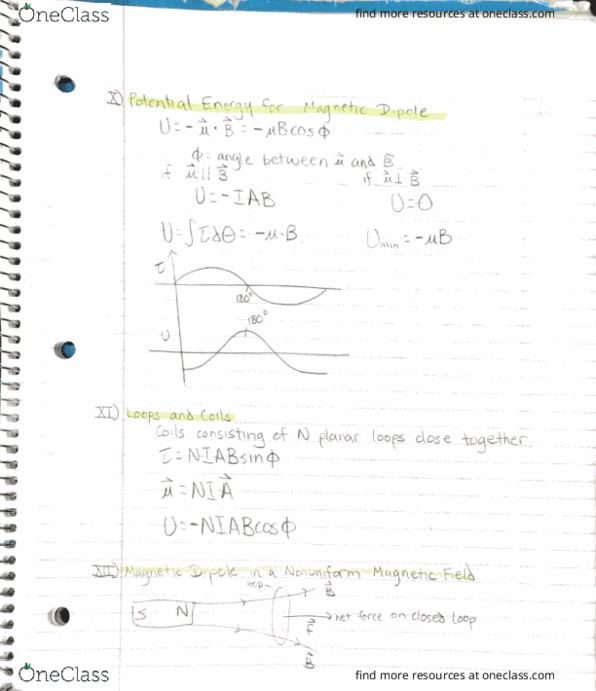 OneClass
find more resources at oneclass.com
X) Potential Energy for Magnetic Dipole
U = -μ⃗ · B⃗ = -μBcosϕ
ϕ: angle between μ⃗ and B⃗
if μ⃗ ∥ B⃗
if μ⃗ ⊥ B⃗
U = -IAB
U = 0
U = ∫τdθ = -μ·B
Umin = -μB
τ
180°
180°
U
XI) Loops and Coils
Coils consisting of N planar loops close together.
τ = NIABsinϕ
μ⃗ = NIA⃗
U = -NIABcosϕ
XII) Magnetic Dipole in a Nonuniform Magnetic Field
loop
B⃗
S N
net force on closed loop
F⃗
B⃗
OneClass
find more resources at oneclass.com